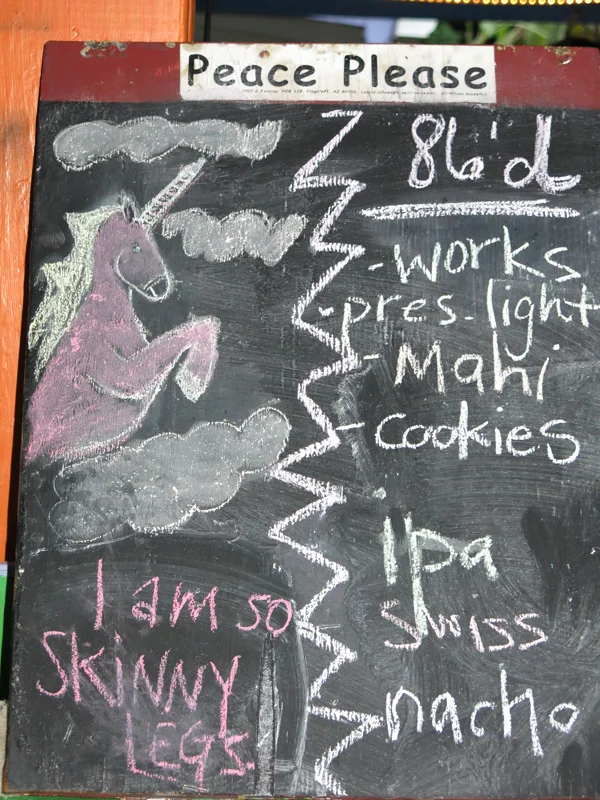 Peace Please
86'd
-works
-pres. light
-Mahi
-cookies
Ipa
swiss
nacho
I am so
SKiNNY
LEGS.